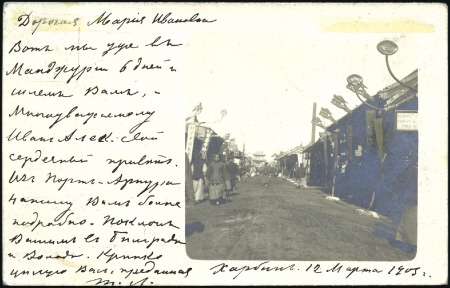 Дорогая Марія Ивановна
Вотъ мы уже въ
Манджуріи 6 дней и
шлемъ Вамъ, и
Многоуважаемому
Ивану Алек. свой
сердечный привѣтъ.
Изъ Портъ-Артура
напишу Вамъ более
подробно. Поклонъ
Вашимъ
и Володѣ. Крѣпко
цѣлую Васъ, преданная
Харбинъ. 12 Марта 1903 г.